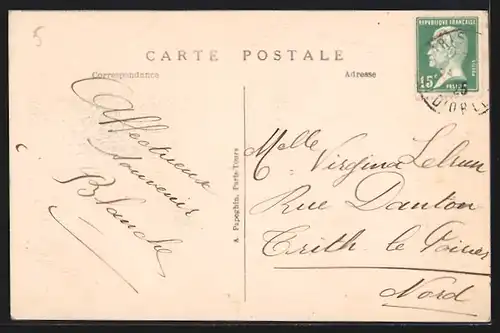 5
CARTE POSTALE
Correspondance
Adresse
REPUBLIQUE FRANÇAISE
15
POSTES
D'ORSAY
Affectueux
Souvenir
Blanche
A. Papeghin, Paris-Tours
Melle Virginia Lebrun
Rue Danton
Trith le Poirier
Nord